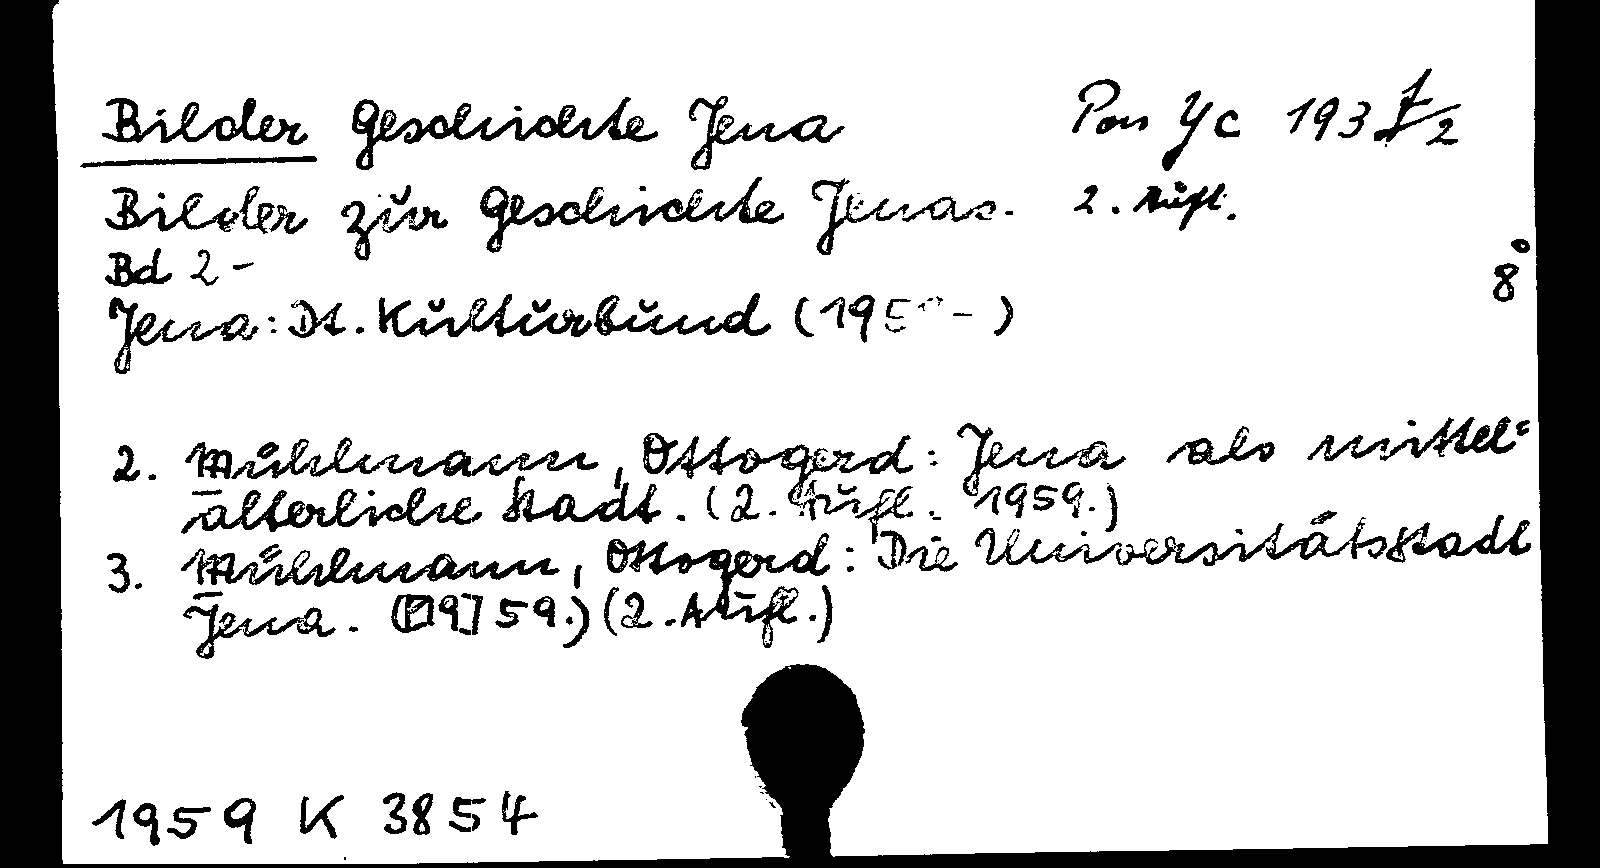 Bilder Geschichte Jena Pon Yc 193 f/2
Bilder zur Geschichte Jenas. 2. Aufl.
Bd 2 -
8°
Jena: Dt. Kulturbund (195 - )
2. Mühlmann, Ottogerd: Jena als mittel=
alterliche Stadt. (2. Aufl. 1959.)
3. Mühlmann, Ottogerd: Die Universitätsstadt
Jena. ([19]59.) (2. Aufl.)
1959 K 3854